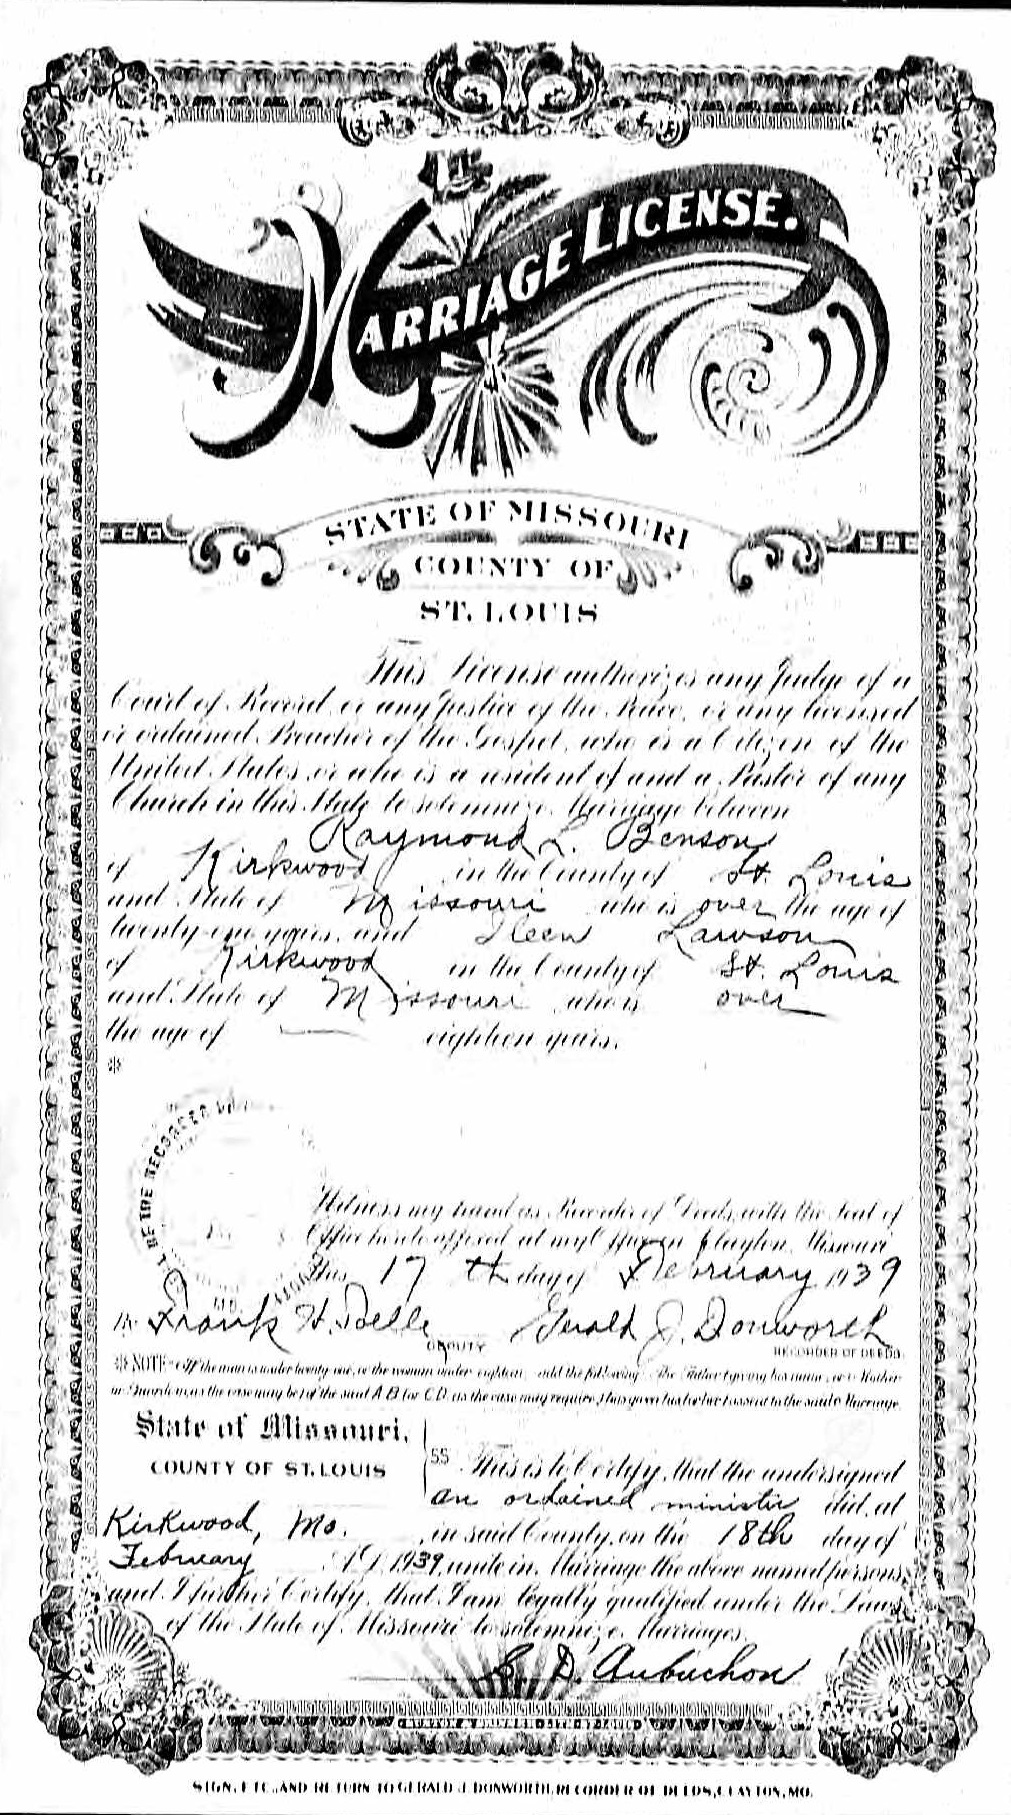 MARRIAGE LICENSE.
STATE OF MISSOURI
COUNTY OF
ST. LOUIS
This License authorizes any Judge of a
Court of Record, or any Justice of the Peace, or any licensed
or ordained Preacher of the Gospel, who is a Citizen of the
United States, or who is a resident of and a Pastor of any
Church in this State, to solemnize Marriage between
Raymond L. Benson
of Kirkwood in the County of St. Louis
and State of Missouri who is over the age of
twenty-one years, and Ileen Lawson
of Kirkwood in the County of St. Louis
and State of Missouri who is over
the age of — eighteen years.
*
OF THE RECORDER
Witness my hand as Recorder of Deeds, with the Seal of
Office hereto affixed, at my Office in Clayton, Missouri
this 17 th day of February 1939
By Frank H. Gerald J. Donworth
DEPUTY RECORDER OF DEEDS.
*NOTE—If the man is under twenty-one, or the woman under eighteen, add the following: The Father (giving his name, or Mother
or Guardian, as the case may be) of the said A.B. (or C.D. as the case may require,) has given his (or her) assent to the said Marriage.
State of Missouri,
COUNTY OF ST. LOUIS
SS This is to Certify, that the undersigned
an ordained minister did, at
Kirkwood, Mo. in said County, on the 18th day of
February A.D. 1939, unite in Marriage the above named persons,
and I further Certify, that I am legally qualified under the Laws
of the State of Missouri to solemnize Marriages.
S. D. Aubuchon
SIGN, ETC., AND RETURN TO GERALD J. DONWORTH, RECORDER OF DEEDS, CLAYTON, MO.